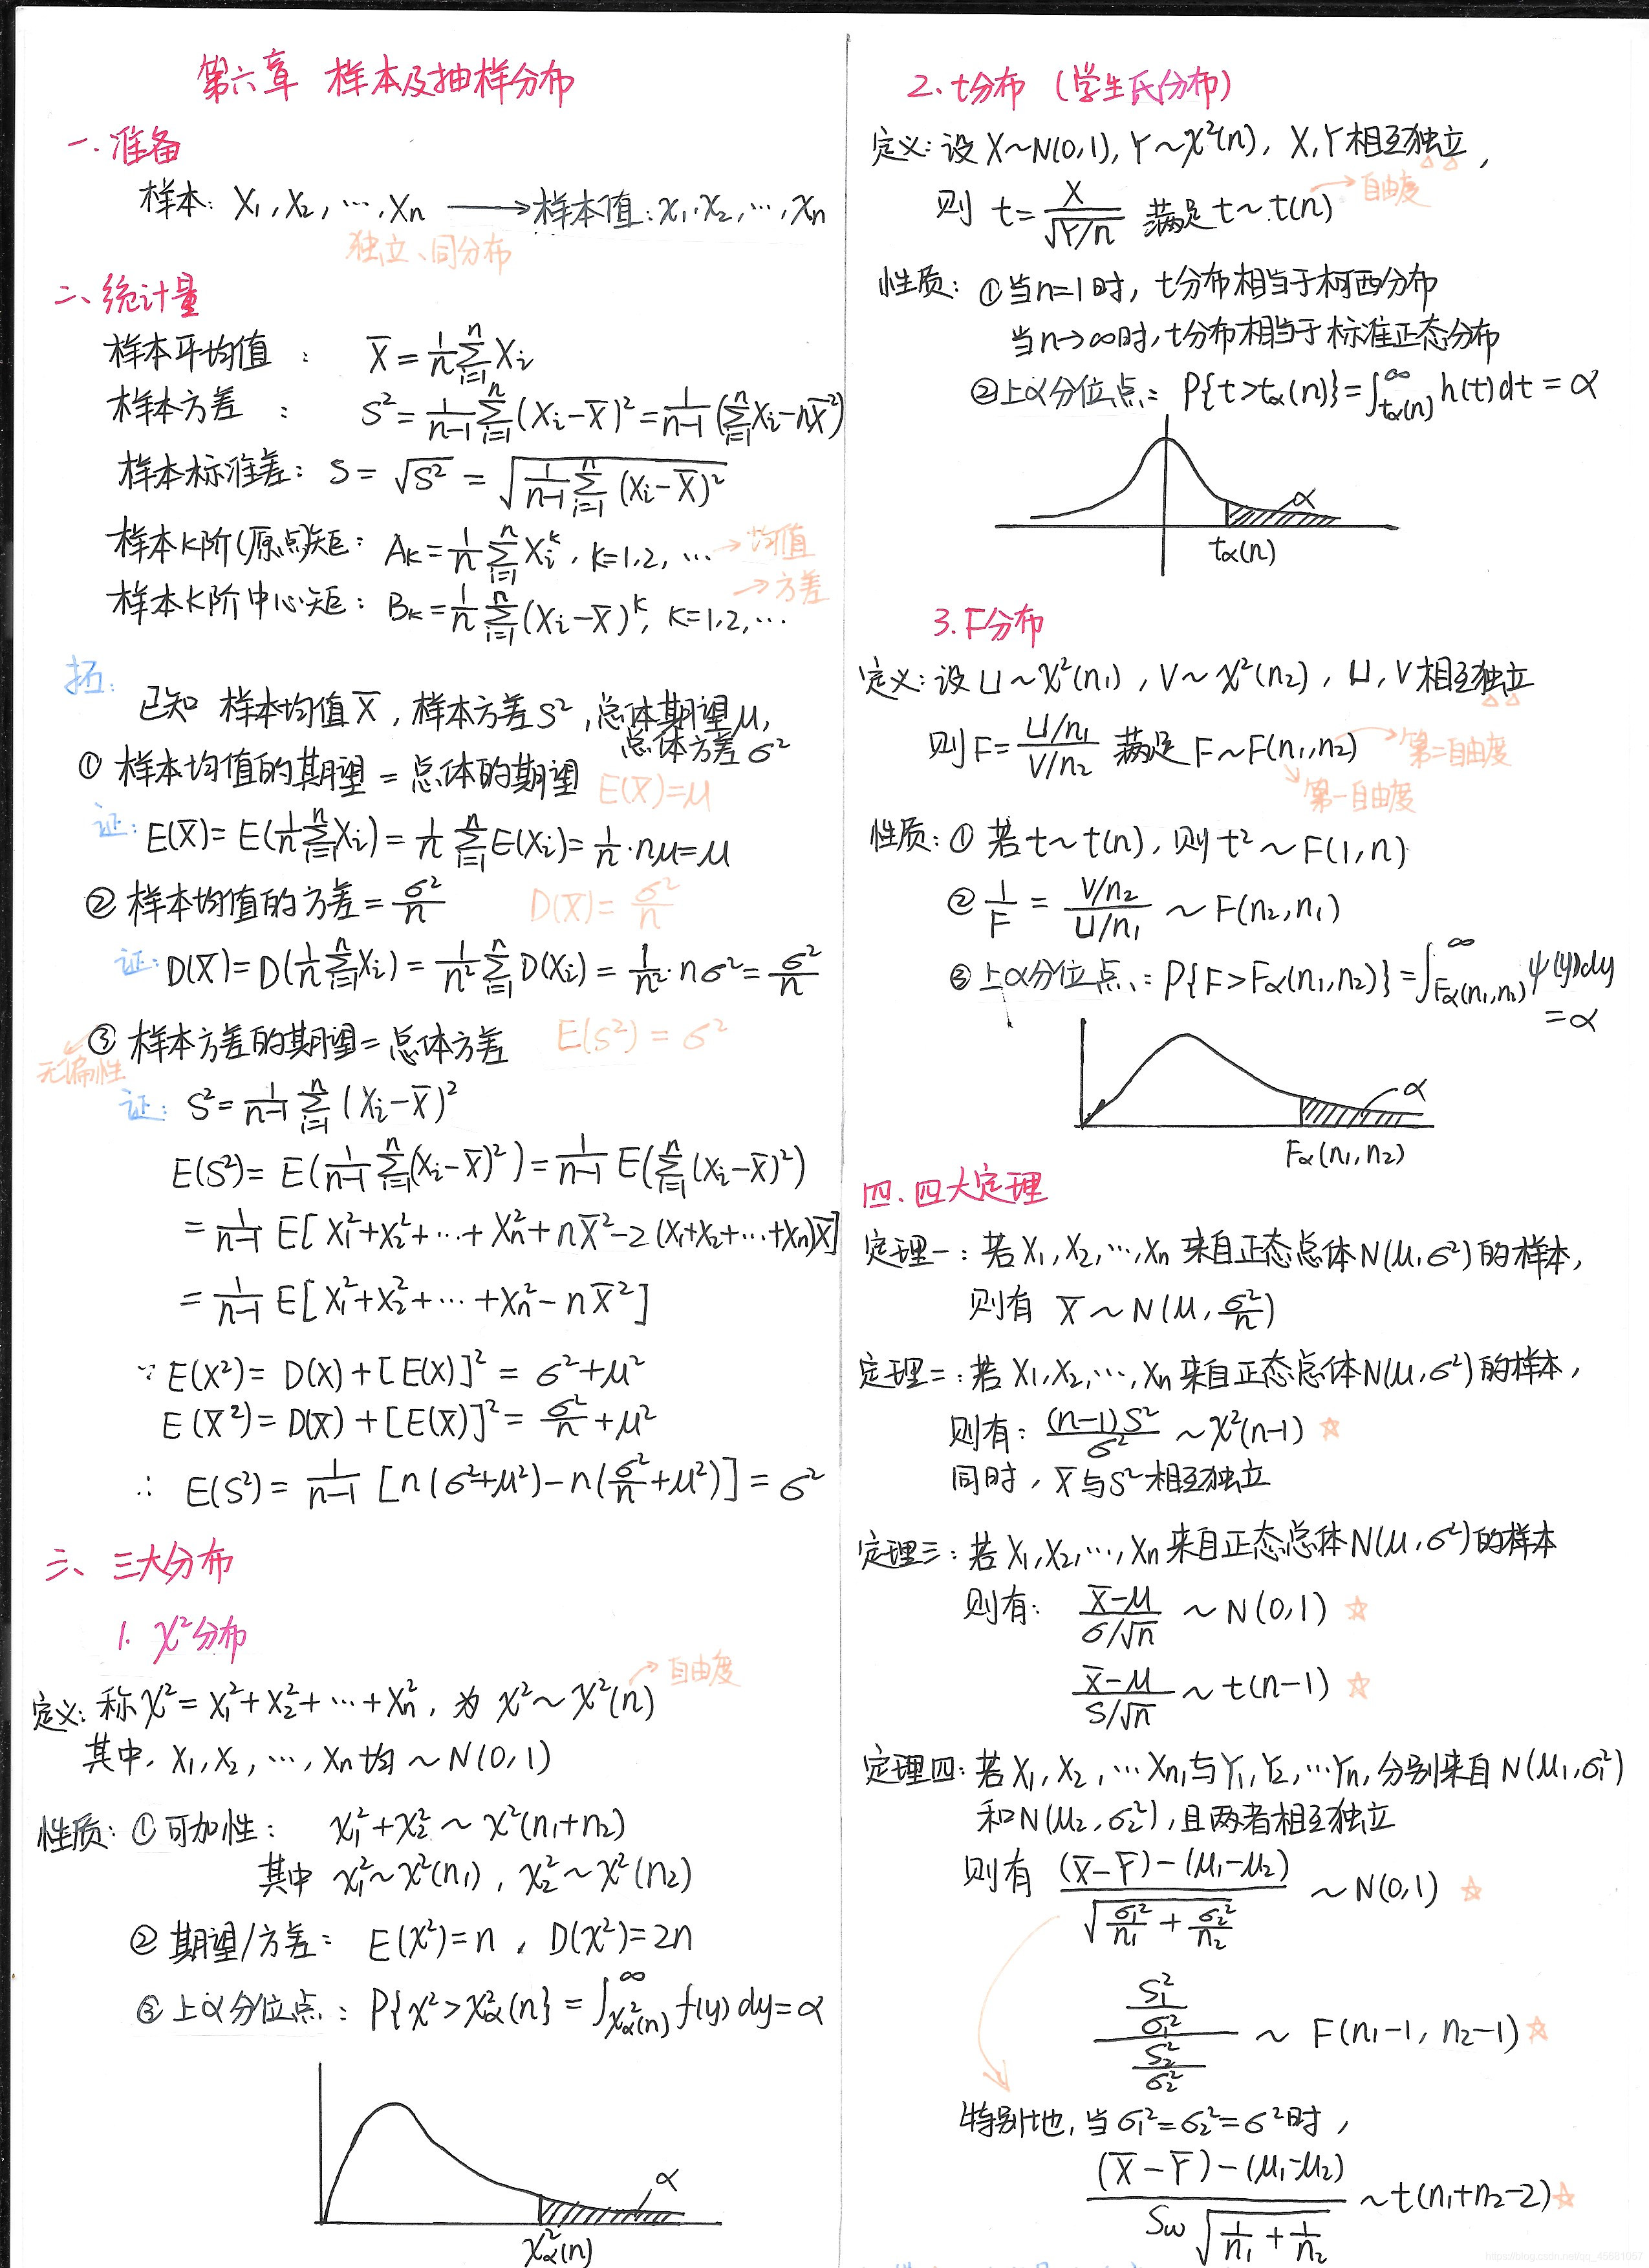 第六章 样本及抽样分布
一.准备
样本: X₁, X₂, ⋯, Xn ⟶ 样本值: x₁, x₂, ⋯, xn
独立、同分布
二、统计量
样本平均值 : X̄ = 1/n Σ(i=1→n) Xi
样本方差 : S² = 1/(n-1) Σ(i=1→n) (Xi-X̄)² = 1/(n-1) (Σ(i=1→n) Xi - nX̄²)
样本标准差: S = √S² = √(1/(n-1) Σ(i=1→n) (Xi-X̄)²)
样本K阶(原点)矩: AK = 1/n Σ(i=1→n) Xi^k, K=1,2, ⋯ → 均值
→ 方差
样本K阶中心矩: BK = 1/n Σ(i=1→n) (Xi-X̄)^K, K=1,2,⋯
拓:
已知 样本均值X̄, 样本方差S², 总体期望μ,
总体方差σ²
① 样本均值的期望 = 总体的期望 E(X̄)=μ
证: E(X̄) = E(1/n Σ(i=1→n) Xi) = 1/n Σ(i=1→n) E(Xi) = 1/n · nμ = μ
② 样本均值的方差 = σ²/n D(X̄) = σ²/n
证: D(X̄) = D(1/n Σ(i=1→n) Xi) = 1/n² Σ(i=1→n) D(Xi) = 1/n² · nσ² = σ²/n
③ 样本方差的期望 = 总体方差 E(S²) = σ²
无偏性
证: S² = 1/(n-1) Σ(i=1→n) (Xi-X̄)²
E(S²) = E(1/(n-1) Σ(i=1→n) (Xi-X̄)²) = 1/(n-1) E(Σ(i=1→n) (Xi-X̄)²)
= 1/(n-1) E[X₁²+X₂²+⋯+Xn²+nX̄²-2(X₁+X₂+⋯+Xn)X̄]
= 1/(n-1) E[X₁²+X₂²+⋯+Xn²-nX̄²]
∵ E(X²) = D(X)+[E(X)]² = σ²+μ²
E(X̄²) = D(X̄)+[E(X̄)]² = σ²/n+μ²
∴ E(S²) = 1/(n-1) [n(σ²+μ²)-n(σ²/n+μ²)] = σ²
三、三大分布
1. χ²分布
→ 自由度
定义: 称χ² = X₁²+X₂²+⋯+Xn², 为 χ²~χ²(n)
其中, X₁, X₂, ⋯, Xn 均~N(0,1)
性质: ①可加性: χ₁²+χ₂² ~ χ²(n₁+n₂)
其中 χ₁²~χ²(n₁), χ₂²~χ²(n₂)
② 期望/方差: E(χ²)=n, D(χ²)=2n
③ 上α分位点: P{χ²>χ²α(n)} = ∫(χ²α(n)→∞) f(y)dy = α
α
χ²α(n)
2. t分布 (学生氏分布)
定义: 设X~N(0,1), Y~χ²(n), X,Y相互独立,
则 t = X/√(Y/n) 满足 t~t(n) → 自由度
性质: ①当n=1时, t分布相当于柯西分布
当n→∞时, t分布相当于标准正态分布
②上α分位点: P{t>tα(n)} = ∫(tα(n)→∞) h(t)dt = α
α
tα(n)
3. F分布
定义: 设U~χ²(n₁), V~χ²(n₂), U,V相互独立
则 F = (U/n₁)/(V/n₂) 满足 F~F(n₁,n₂) → 第二自由度
第一自由度
性质: ① 若t~t(n), 则t²~F(1,n)
② 1/F = (V/n₂)/(U/n₁) ~ F(n₂,n₁)
③ 上α分位点: P{F>Fα(n₁,n₂)} = ∫(Fα(n₁,n₂)→∞) ψ(y)dy
=α
α
Fα(n₁,n₂)
四.四大定理
定理一: 若X₁,X₂,⋯,Xn 来自正态总体N(μ,σ²)的样本,
则有 X̄~N(μ, σ²/n)
定理二: 若X₁,X₂,⋯,Xn 来自正态总体N(μ,σ²)的样本,
则有: (n-1)S²/σ² ~ χ²(n-1) ☆
同时, X̄与S²相互独立
定理三: 若X₁,X₂,⋯,Xn 来自正态总体N(μ,σ²)的样本
则有: (X̄-μ)/(σ/√n) ~ N(0,1) ☆
(X̄-μ)/(S/√n) ~ t(n-1) ☆
定理四: 若X₁,X₂,⋯Xn₁与Y₁,Y₂,⋯Yn, 分别来自N(μ₁,σ₁²)
和N(μ₂,σ₂²), 且两者相互独立
则有 ((X̄-Ȳ)-(μ₁-μ₂))/√(σ₁²/n₁+σ₂²/n₂) ~ N(0,1) ☆
(S₁²/σ₁²)/(S₂²/σ₂²) ~ F(n₁-1, n₂-1) ☆
特别地, 当σ₁²=σ₂²=σ²时,
((X̄-Ȳ)-(μ₁-μ₂))/(Sw√(1/n₁+1/n₂)) ~ t(n₁+n₂-2) ☆